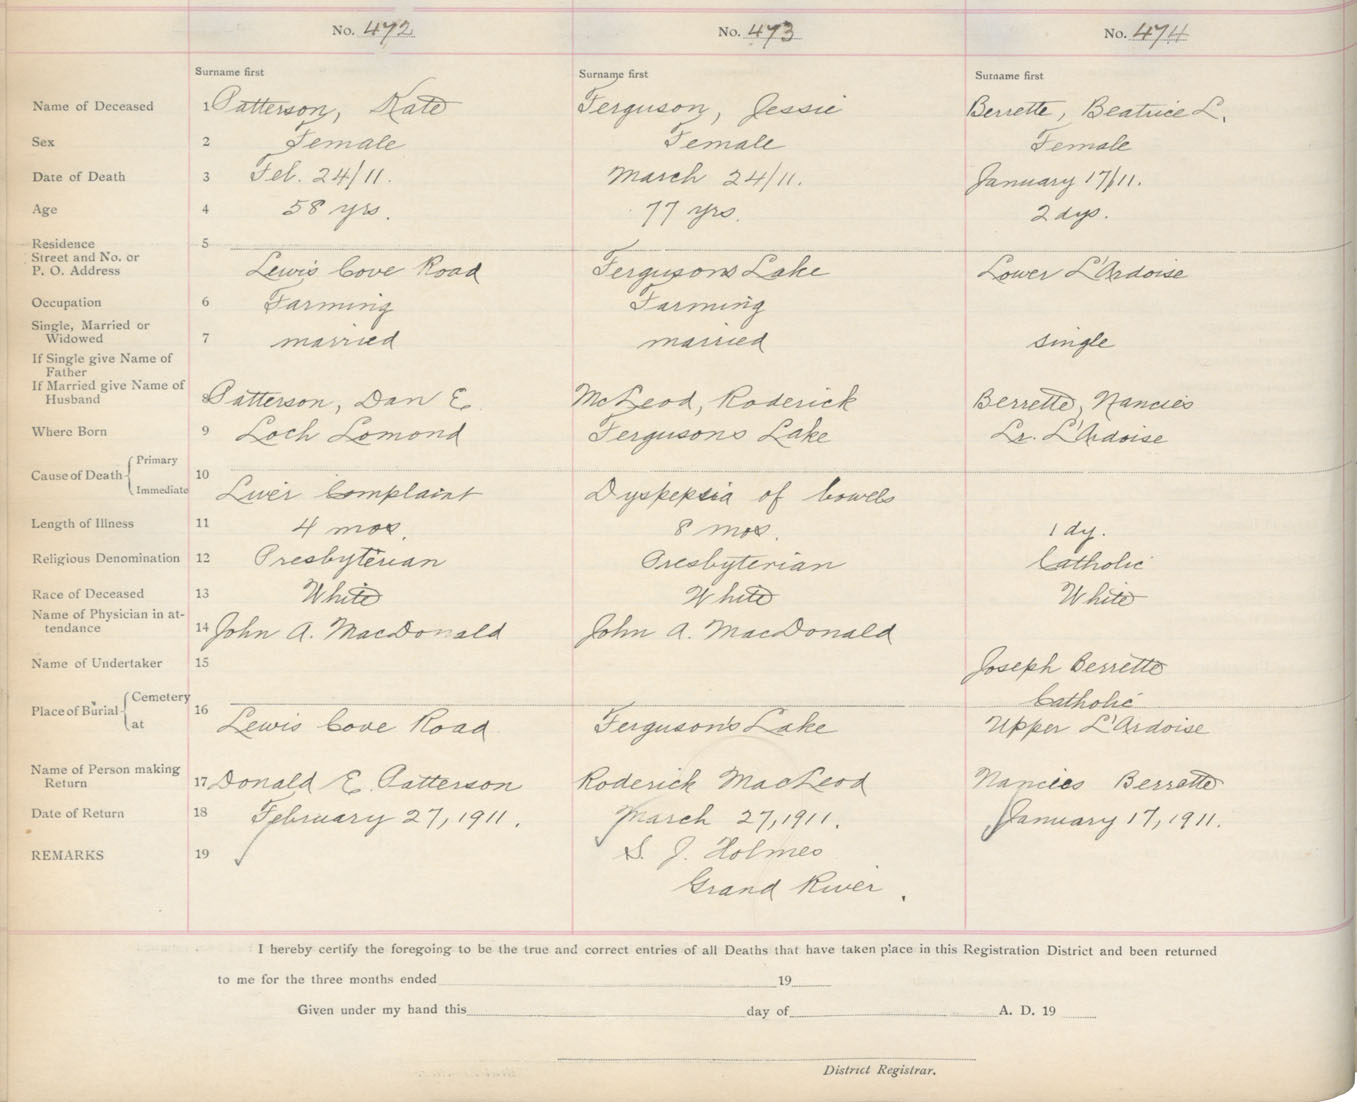 No. 472 No. 473 No. 474
Surname first Surname first Surname first
Name of Deceased 1 Patterson, Kate Ferguson, Jessie Berrette, Beatrice L.
Sex 2 Female Female Female
Date of Death 3 Feb. 24/11. March 24/11. January 17/11.
Age 4 58 yrs. 77 yrs. 2 dys.
Residence 5
Street and No. or
P. O. Address Lewis Cove Road Fergusons Lake Lower L'Ardoise
Occupation 6 Farming Farming
Single, Married or
Widowed 7 married married single
If Single give Name of
Father
If Married give Name of
Husband 8 Patterson, Dan E. McLeod, Roderick Berrette, Nancies
Where Born 9 Loch Lomond Fergusons Lake Lr. L'Ardoise
Cause of Death Primary 10
Immediate Liver Complaint Dyspepsia of bowels
Length of Illness 11 4 mos. 8 mos. 1 dy.
Religious Denomination 12 Presbyterian Presbyterian Catholic
Race of Deceased 13 White White White
Name of Physician in at-
tendance 14 John A. MacDonald John A. MacDonald
Name of Undertaker 15 Joseph Berrette
Place of Burial Cemetery 16 Catholic
at Lewis Cove Road Ferguson's Lake Upper L'Ardoise
Name of Person making
Return 17 Donald E. Patterson Roderick MacLeod Nancies Berrette
Date of Return 18 February 27, 1911. March 27, 1911. January 17, 1911.
REMARKS 19 S. J. Holmes
Grand River.
I hereby certify the foregoing to be the true and correct entries of all Deaths that have taken place in this Registration District and been returned
to me for the three months ended 19
Given under my hand this day of A. D. 19
District Registrar.